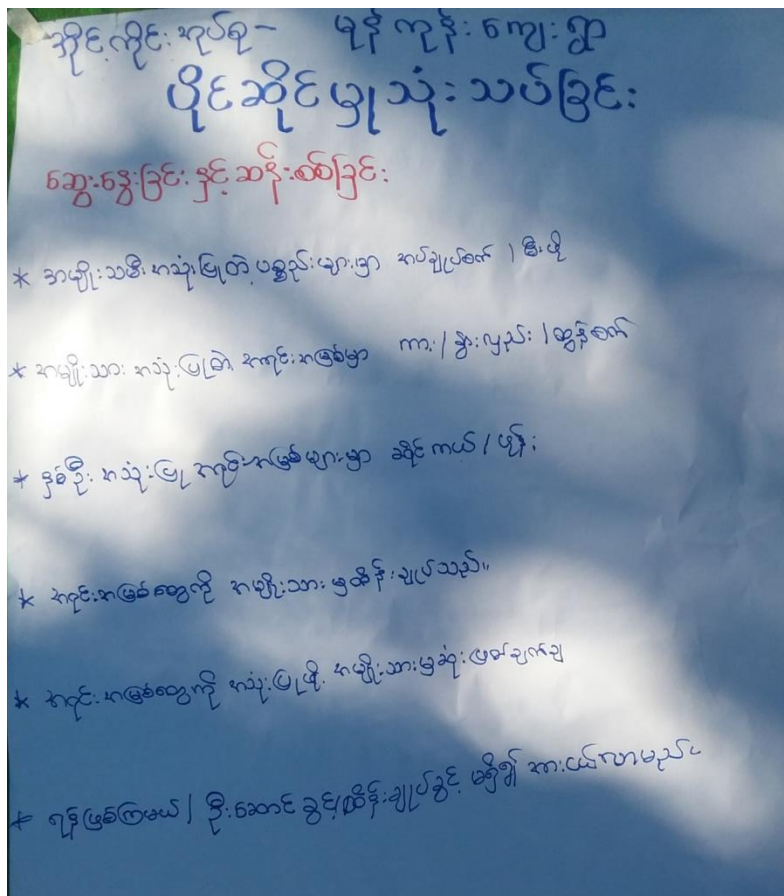 အိုင်ကိုင်းအုပ်စု- မုန်ကုန်းကျေးရွာ
ပိုင်ဆိုင်မှုသုံးသပ်ခြင်း
ဆွေးနွေးခြင်းနှင့်ဆန်းစစ်ခြင်း
* အမျိုးသမီးအသုံးပြုတဲ့ပစ္စည်းများမှာ အပ်ချုပ်စက် / မီးဖို
* အမျိုးသားအသုံးပြုတဲ့ အရင်းအမြစ်မှာ ကား / နွားလှည်း / ထွန်စက်
* နှစ်ဦးအသုံးပြု အရင်းအမြစ်များမှာ ဆိုင်ကယ် / ဖုန်း
* အရင်းအမြစ်တွေကို အမျိုးသားမှထိန်းချုပ်သည်။
* အရင်းအမြစ်တွေကို အသုံးပြုဖို့ အမျိုးသားမှဆုံးဖြတ်ချက်ချ
* ရန်ဖြစ်ကြမယ် / ဦးဆောင်ခွင့်/ထိန်းချုပ်ခွင့် မရှိ၍ အားငယ်လာမည်။